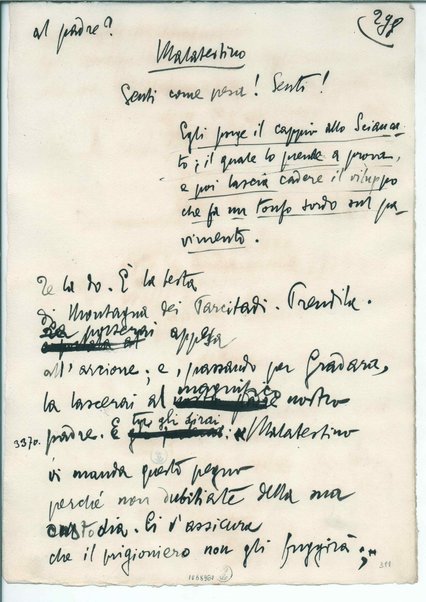 298
al padre?
Malatestino
Senti come pesa! Senti!
Egli porge il cappio allo Scianca-
to; il quale lo prende a prova,
e poi lascia cadere il viluppo
che fa un tonfo sordo sul pa-
vimento.
Te la do. È la testa
di Montagna dei Parcitadi. Prendila.
La porterai appesa
all'arcione; e, passando per Gradara,
la lascerai al magnifico nostro
3370. padre. E tu gli dirai: "Malatestino
vi manda questo pegno
perché non dubitiate della sua
custodia. Ei v'assicura
che il prigioniero non gli fuggirà;"
1068960
311